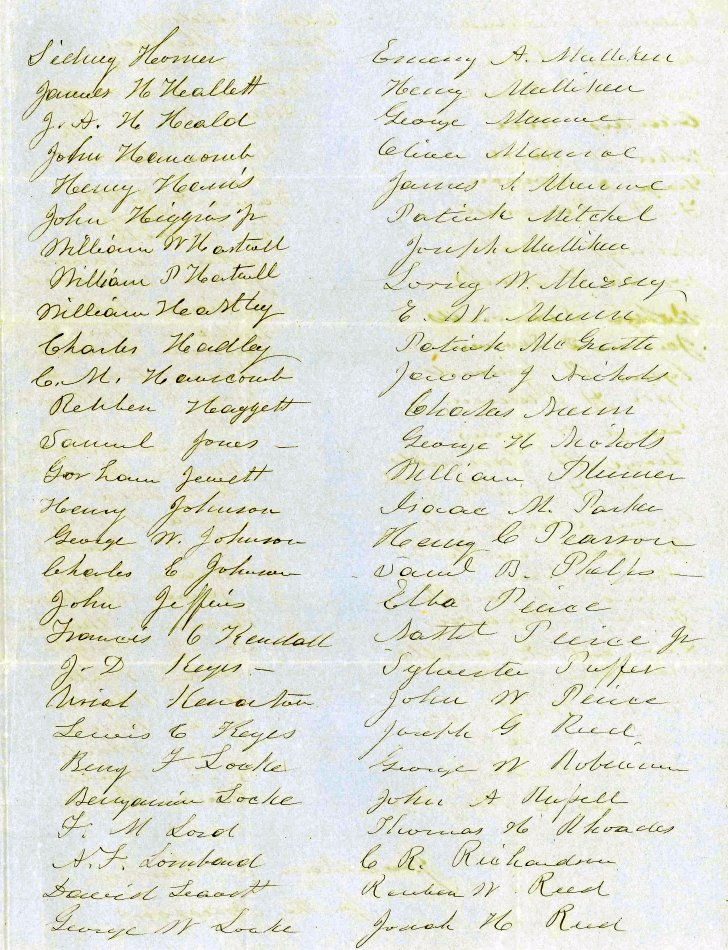 Sidney Homer
James H Heallett
J. A. H Heald
John Hanscomb
Henry Harris
John Higgins Jr
William W Hartwell
William P Hartwell
William Hartley
Charles Hadley
C. M. Hanscomb
Rehben Haggett
Samuel Jones —
Gorham Jewett
Henry Johnson
George W. Johnson
Charles E Johnson
John Jeffries
Francis C Kendall
J. D Keyes —
Uriel Kenaston
Lewis C Keyes
Benj F Locke
Benjamin Locke
F. M Lord
A. F. Lombard
David Leavett
George W Locke
Emery A. Mulliken
Henry Mulliken
George Munroe
Oliver Munroe
James S Munroe
Patrick Mitchel
Joseph Mulliken
Loring W. Muzzey
E. W. Munn
Patrick McGrath
Jacob J Nichols
Charles Nunn
George H Nichols
William Plumer
Isaac M. Parker
Henry C Pearson
Saml B. Phelps —
Elba Peirce
Nathl Peirce Jr
Sylvester Puffer
John W Peirce
Joseph G Reed
George W Robinson
John A Russell
Thomas H Rhoades
C R. Richardson
Reuben W. Reed
Josiah H Reed